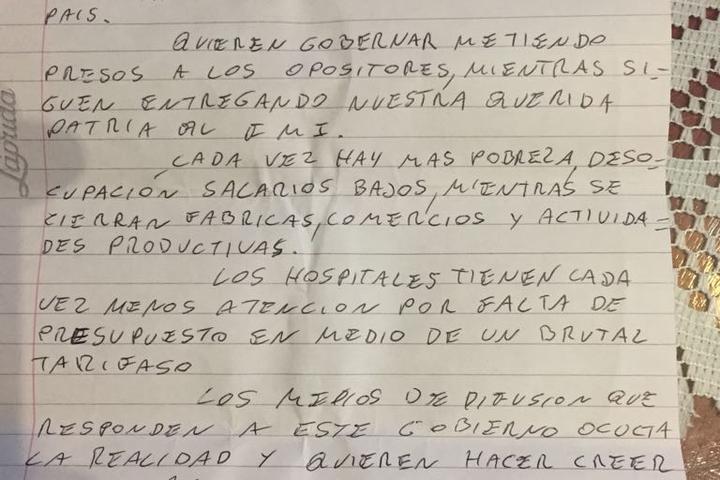 PAIS.
QUIEREN GOBERNAR METIENDO
PRESOS A LOS OPOSITORES, MIENTRAS SI-
GUEN ENTREGANDO NUESTRA QUERIDA
PATRIA AL FMI.
CADA VEZ HAY MAS POBREZA, DESO-
CUPACIÓN SALARIOS BAJOS, MIENTRAS SE
CIERRAN FABRICAS, COMERCIOS Y ACTIVIDA-
DES PRODUCTIVAS.
LOS HOSPITALES TIENEN CADA
VEZ MENOS ATENCION POR FALTA DE
PRESUPUESTO EN MEDIO DE UN BRUTAL
TARIFASO
LOS MEDIOS DE DIFUSION QUE
RESPONDEN A ESTE GOBIERNO OCUCTA
LA REALIDAD Y QUIEREN HACER CREER
Laprida